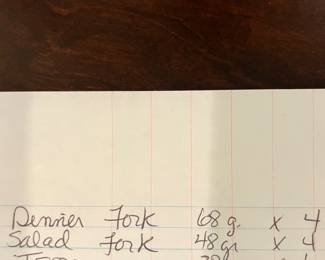 Dinner Fork 68 g. x 4
Salad Fork 48 gr x 4